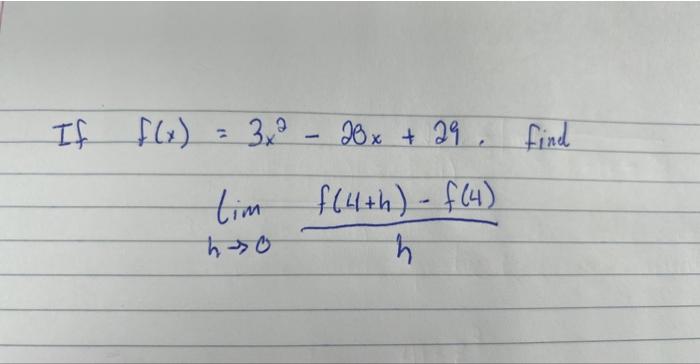 If f(x) = 3x² - 28x + 29. find
lim f(4+h) - f(4)
h→0 h